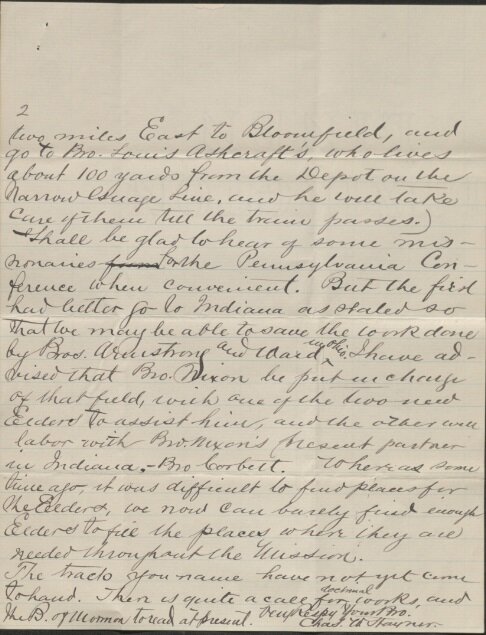 2
two miles East to Bloomfield, and
go to Bro. Louis Ashcraft's, who lives
about 100 yards from the Depot on the
Narrow Guage Line, and he will take
care of them till the train passes.)
I shall be glad to hear of some mis-
sionaries from for the Pennsylvania Con-
ference when convenient. But the first
had better go to Indiana as stated so
that we may be able to save the work done
by Bros. Armstrong and Ward in Ohio. I have ad-
vised that Bro. Nixon be put in charge
of that field, with one of the two new
Elders to assist him, and the other will
labor with Bro. Nixon's present partner
in Indiana. - Bro Corbett. Whereas some
time ago, it was difficult to find places for
the Elders, we now can barely find enough
Elders to fill the places where they are
needed throughout the Mission.
The tracts you name have not yet come
to hand. There is quite a call for doctrinal works, and
the B. of Mormon to read at present. Very Resp'y Your Bro.
Chas. A. Haynes.